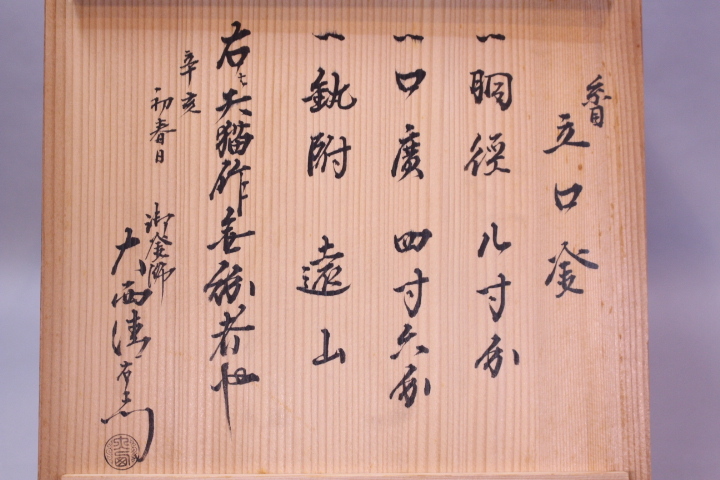 糸目
立口釜
一胴徑八寸分
一口廣四寸六分
一釻附 遠山
右大猫作無紛者也
辛亥
初春日
御釜師
大西清右衛門